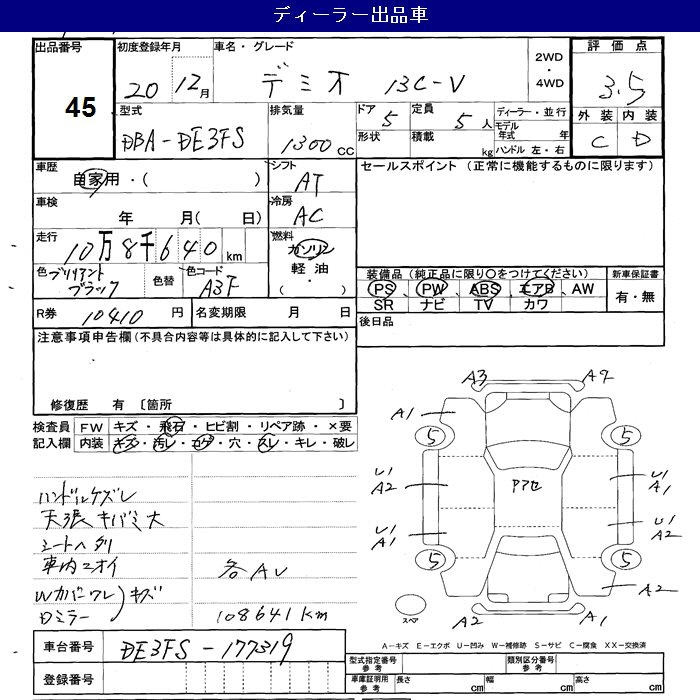 ディーラー出品車
出品番号 45
初度登録年月 20 12月
車名・グレード デミオ 13C-V
2WD・4WD
評価点 3.5
外装 C 内装 D
型式 DBA-DE3FS
排気量 1300cc
ドア 5
形状
定員 5人
積載 kg
ディーラー・並行
モデル年式 年
ハンドル 左・右
車歴 自家用・( )
シフト AT
セールスポイント(正常に機能するものに限ります)
車検 年 月( 日)
冷房 AC
走行 10万8千640km
燃料 ガソリン
軽油
・( )
色 ブリリアントブラック
色替
色コード A3F
装備品(純正品に限り○をつけてください)
PS PW ABS エアB AW
SR ナビ TV カワ
新車保証書
有・無
R券 10410円
名変期限 月 日
後日品
注意事項申告欄(不具合内容等は具体的に記入して下さい)
修復歴 有〔箇所 〕
検査員記入欄
FW キズ・飛石・ヒビ割・リペア跡・×要
内装 キズ・汚レ・コゲ・穴・スレ・キレ・破レ
ハンドルケズレ
天張キバミ大
シートヘタリ
車内ニオイ
Wカバーワレ
Dミラー
キズ
各AU
108641km
A3 A2
A1
5 5
U1 A2
U1 A1
Pアセ
U1 A1
U1 A2
5 5
A2
スペア
A2 A1
A-キズ E-エクボ U-凹み W-補修跡 S-サビ C-腐食 XX-交換済
車台番号 DE3FS-177319
登録番号
型式指定番号 参考
類別区分番号 参考
車庫証明用 参考
長さ cm
幅 cm
高さ cm